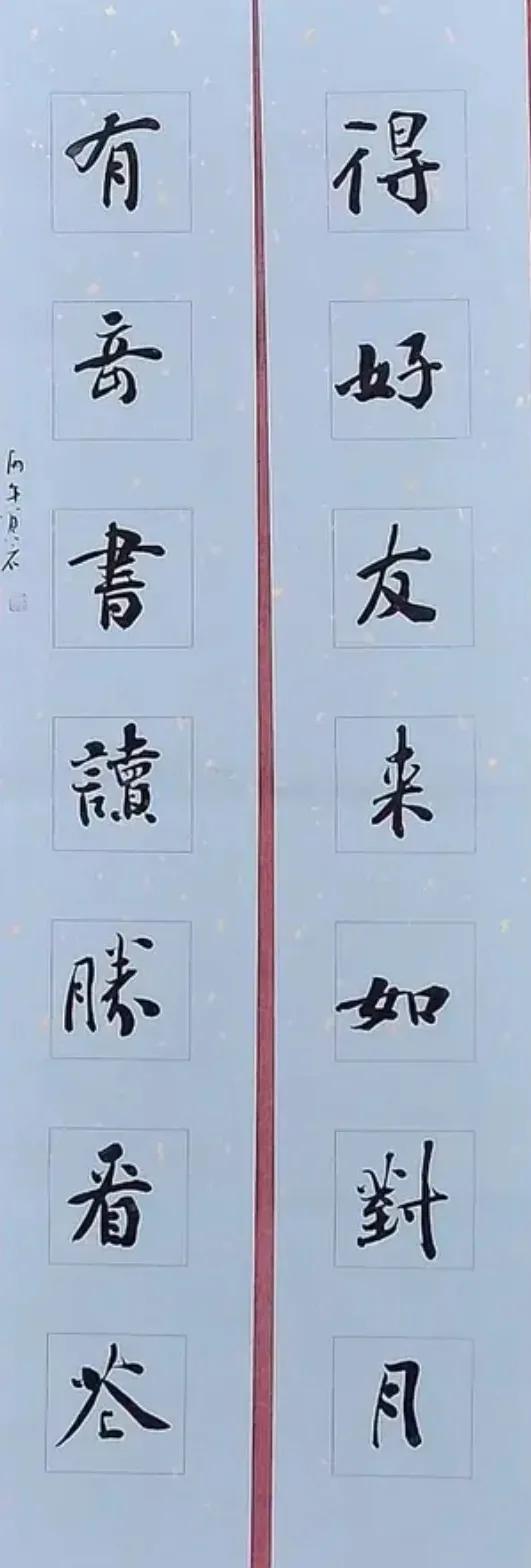 得好友来如對月
有奇書讀勝看花
丙午